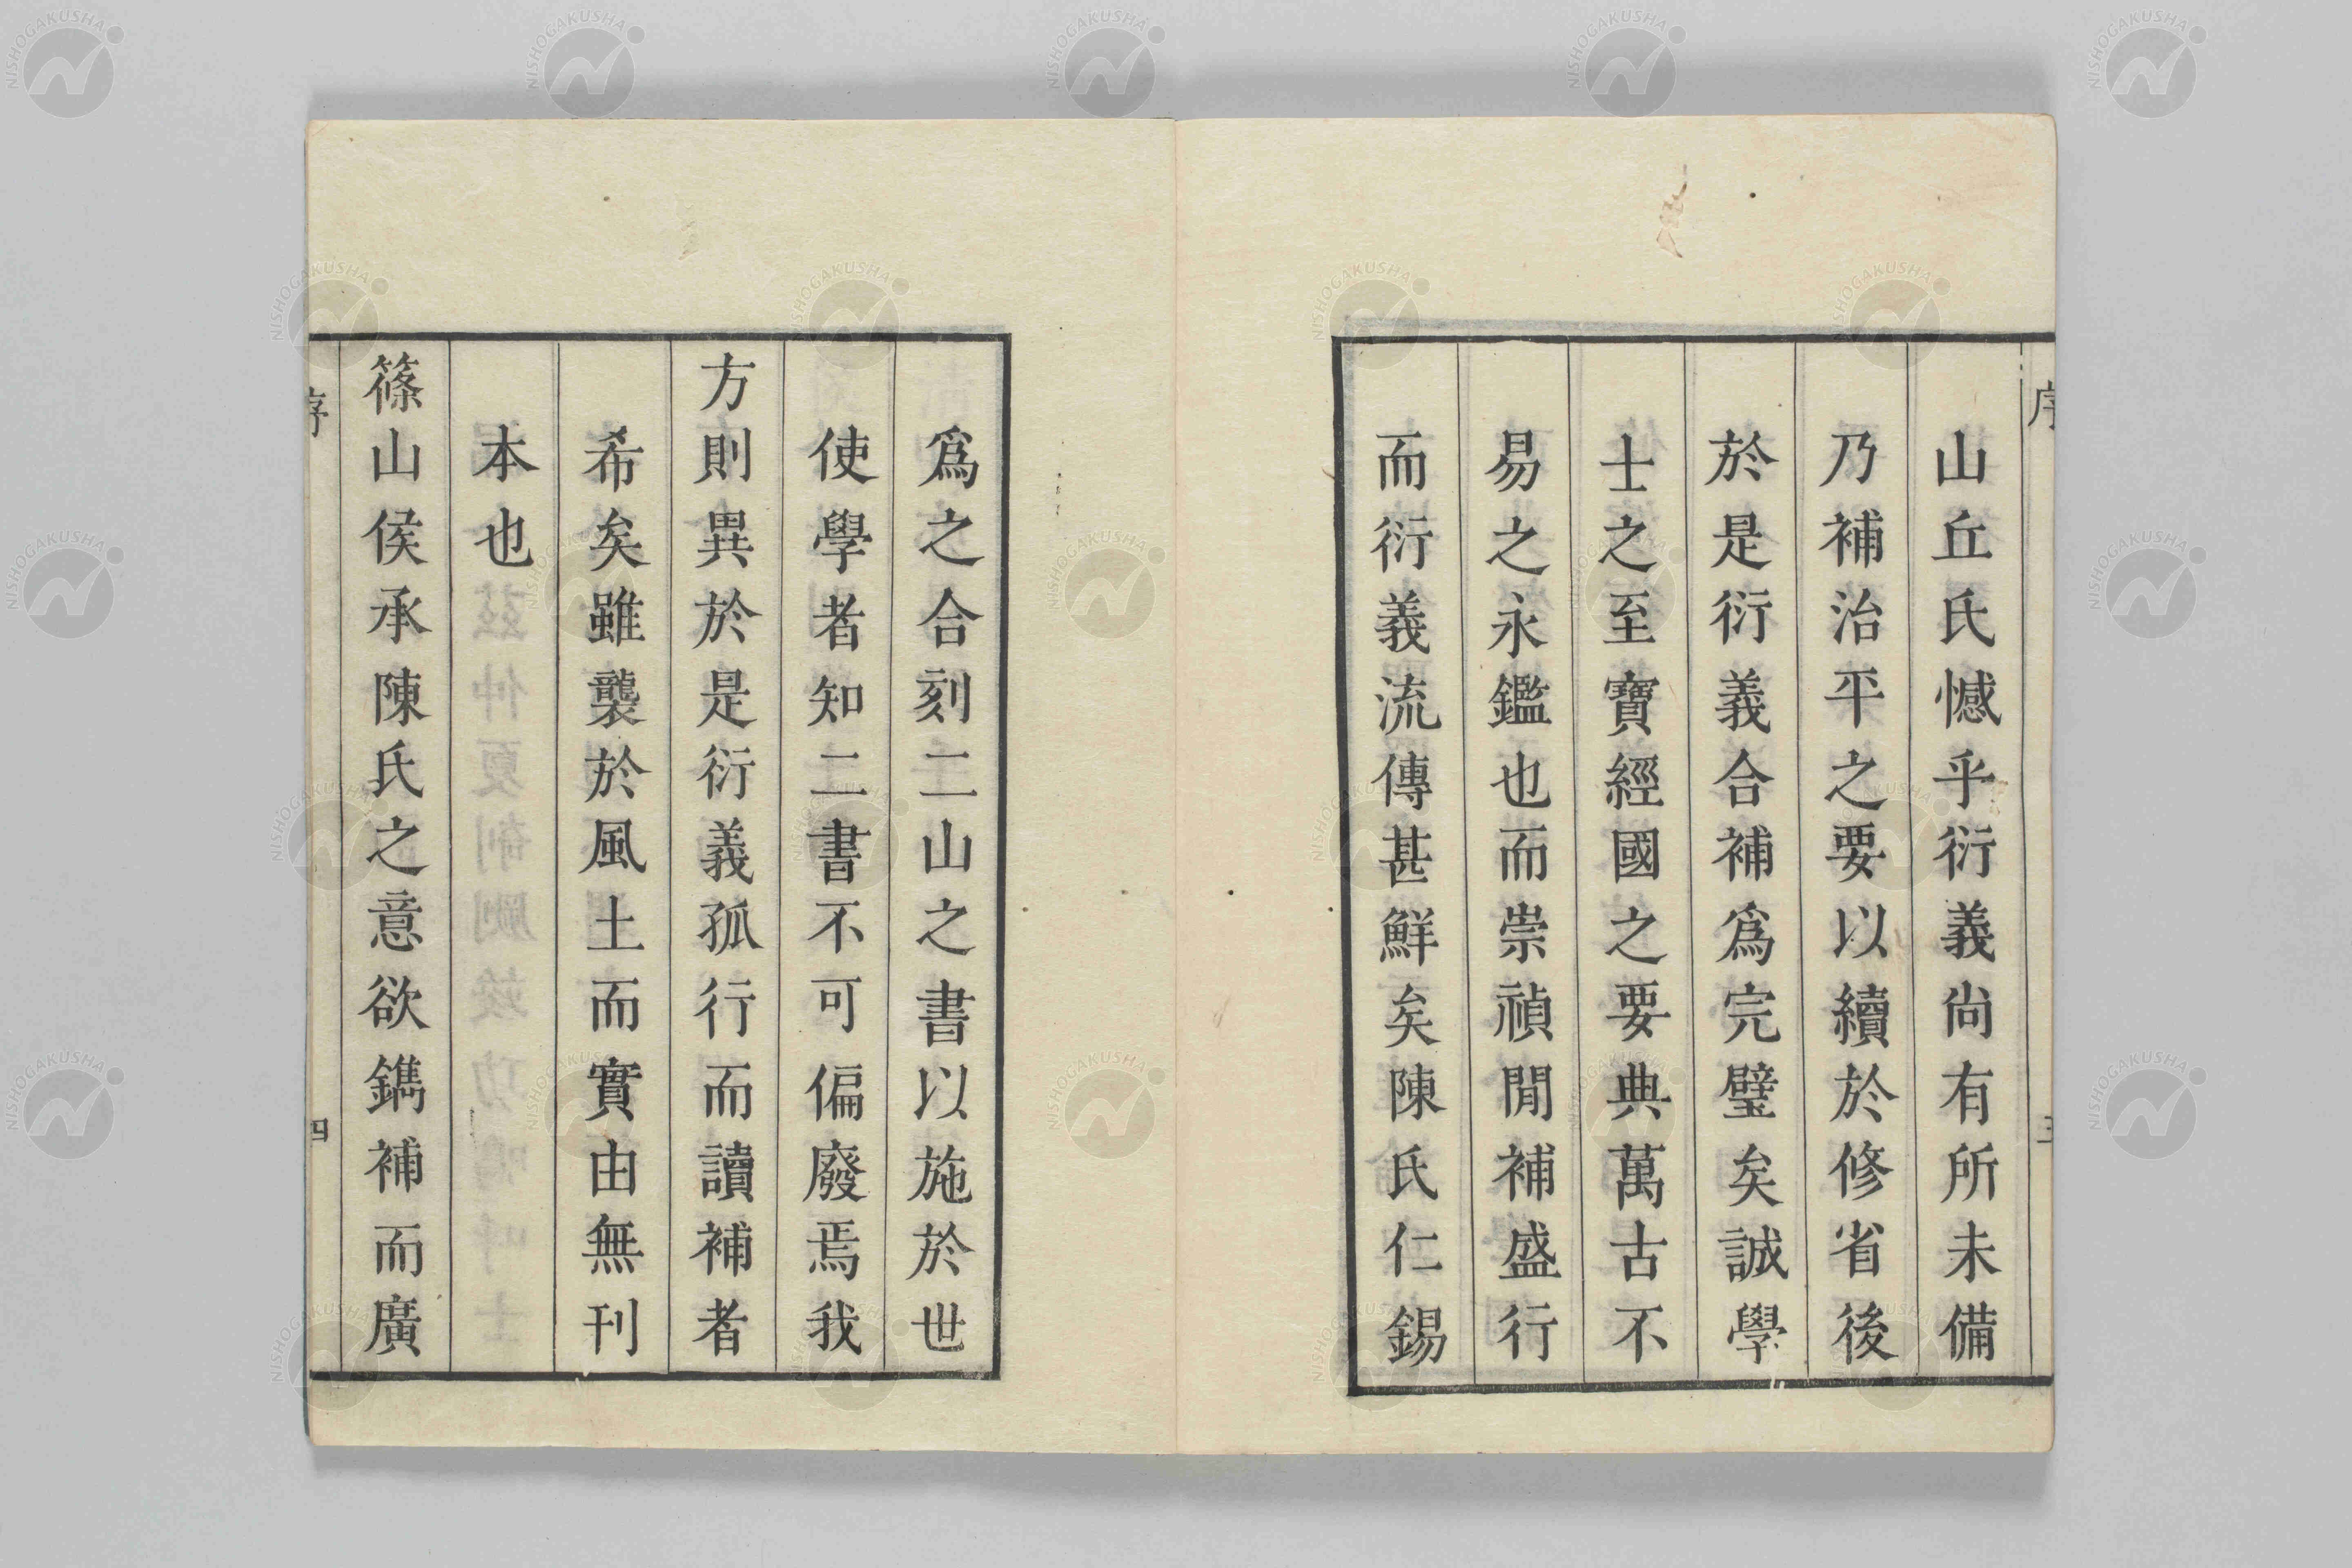 序
山丘氏憾乎衍義尙有所未備
乃補治平之要以續於修省後
於是衍義合補爲完璧矣誠學
士之至寶經國之要典萬古不
易之永鑑也而崇禎閒補盛行
而衍義流傳甚鮮矣陳氏仁錫
爲之合刻二山之書以施於世
使學者知二書不可偏廢焉我
方則異於是衍義孤行而讀補者
希矣雖襲於風土而實由無刊
本也
篠山侯承陳氏之意欲鐫補而廣
序
四
NISHOGAKUSHA